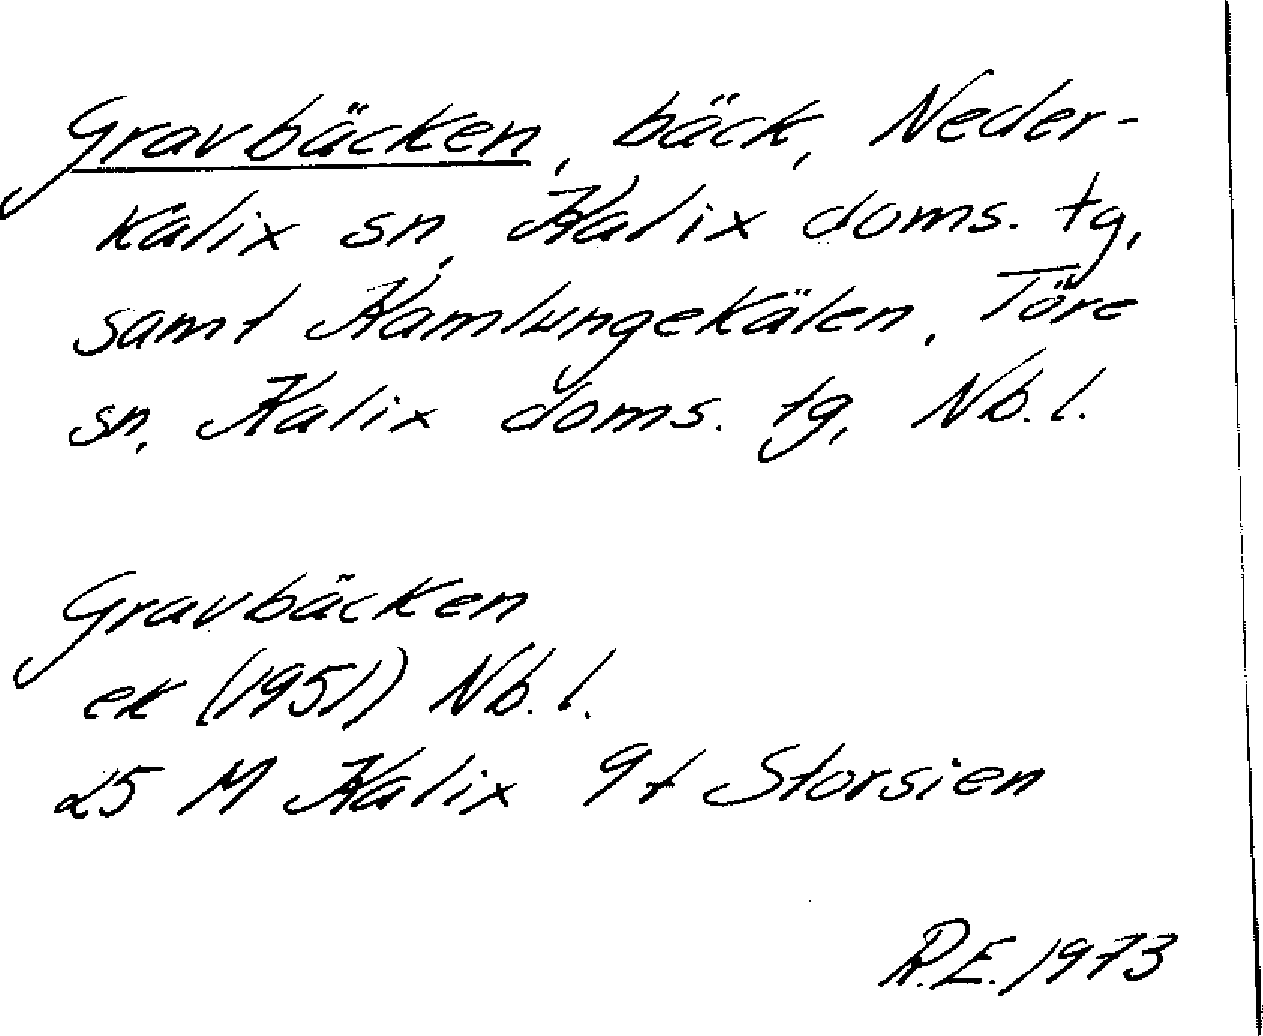 Gravbäcken, bäck, Neder-
kalix sn, Kalix doms. tg,
samt Kamlungekälen, Töre
sn, Kalix doms. tg, Nb. l.
Gravbäcken
ek (1951) Nb. l.
25 M Kalix 9f Storsien
R.E. 1973